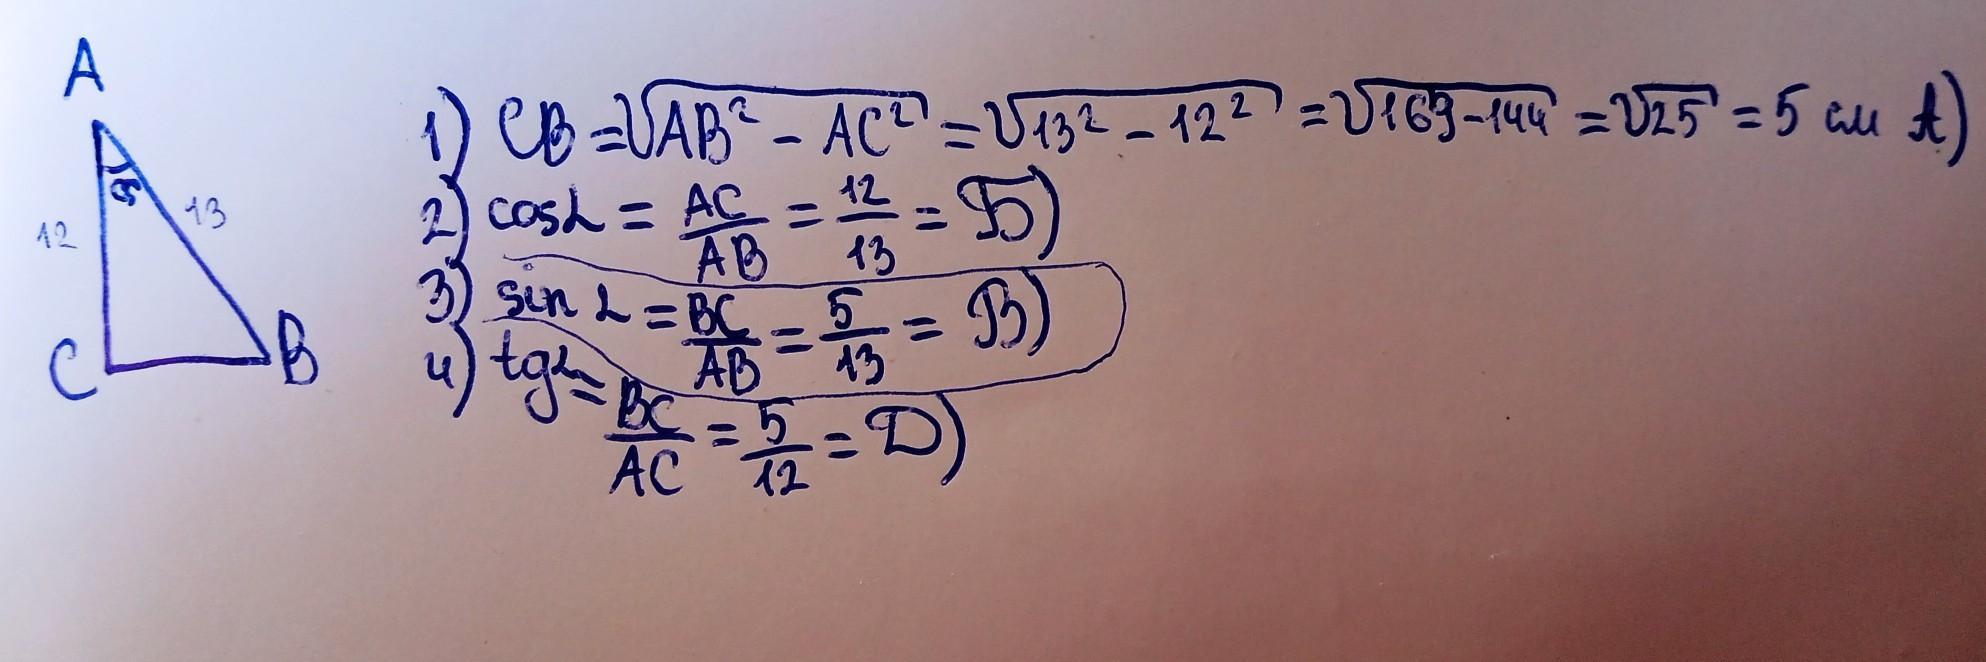 A
α
12
13
C
B
1) CB = √AB² - AC² = √13² - 12² = √169-144 = √25 = 5 см А)
2) cosα = AC/AB = 12/13 = Б)
3) sin α = BC/AB = 5/13 = В)
4) tgα = BC/AC = 5/12 = Д)